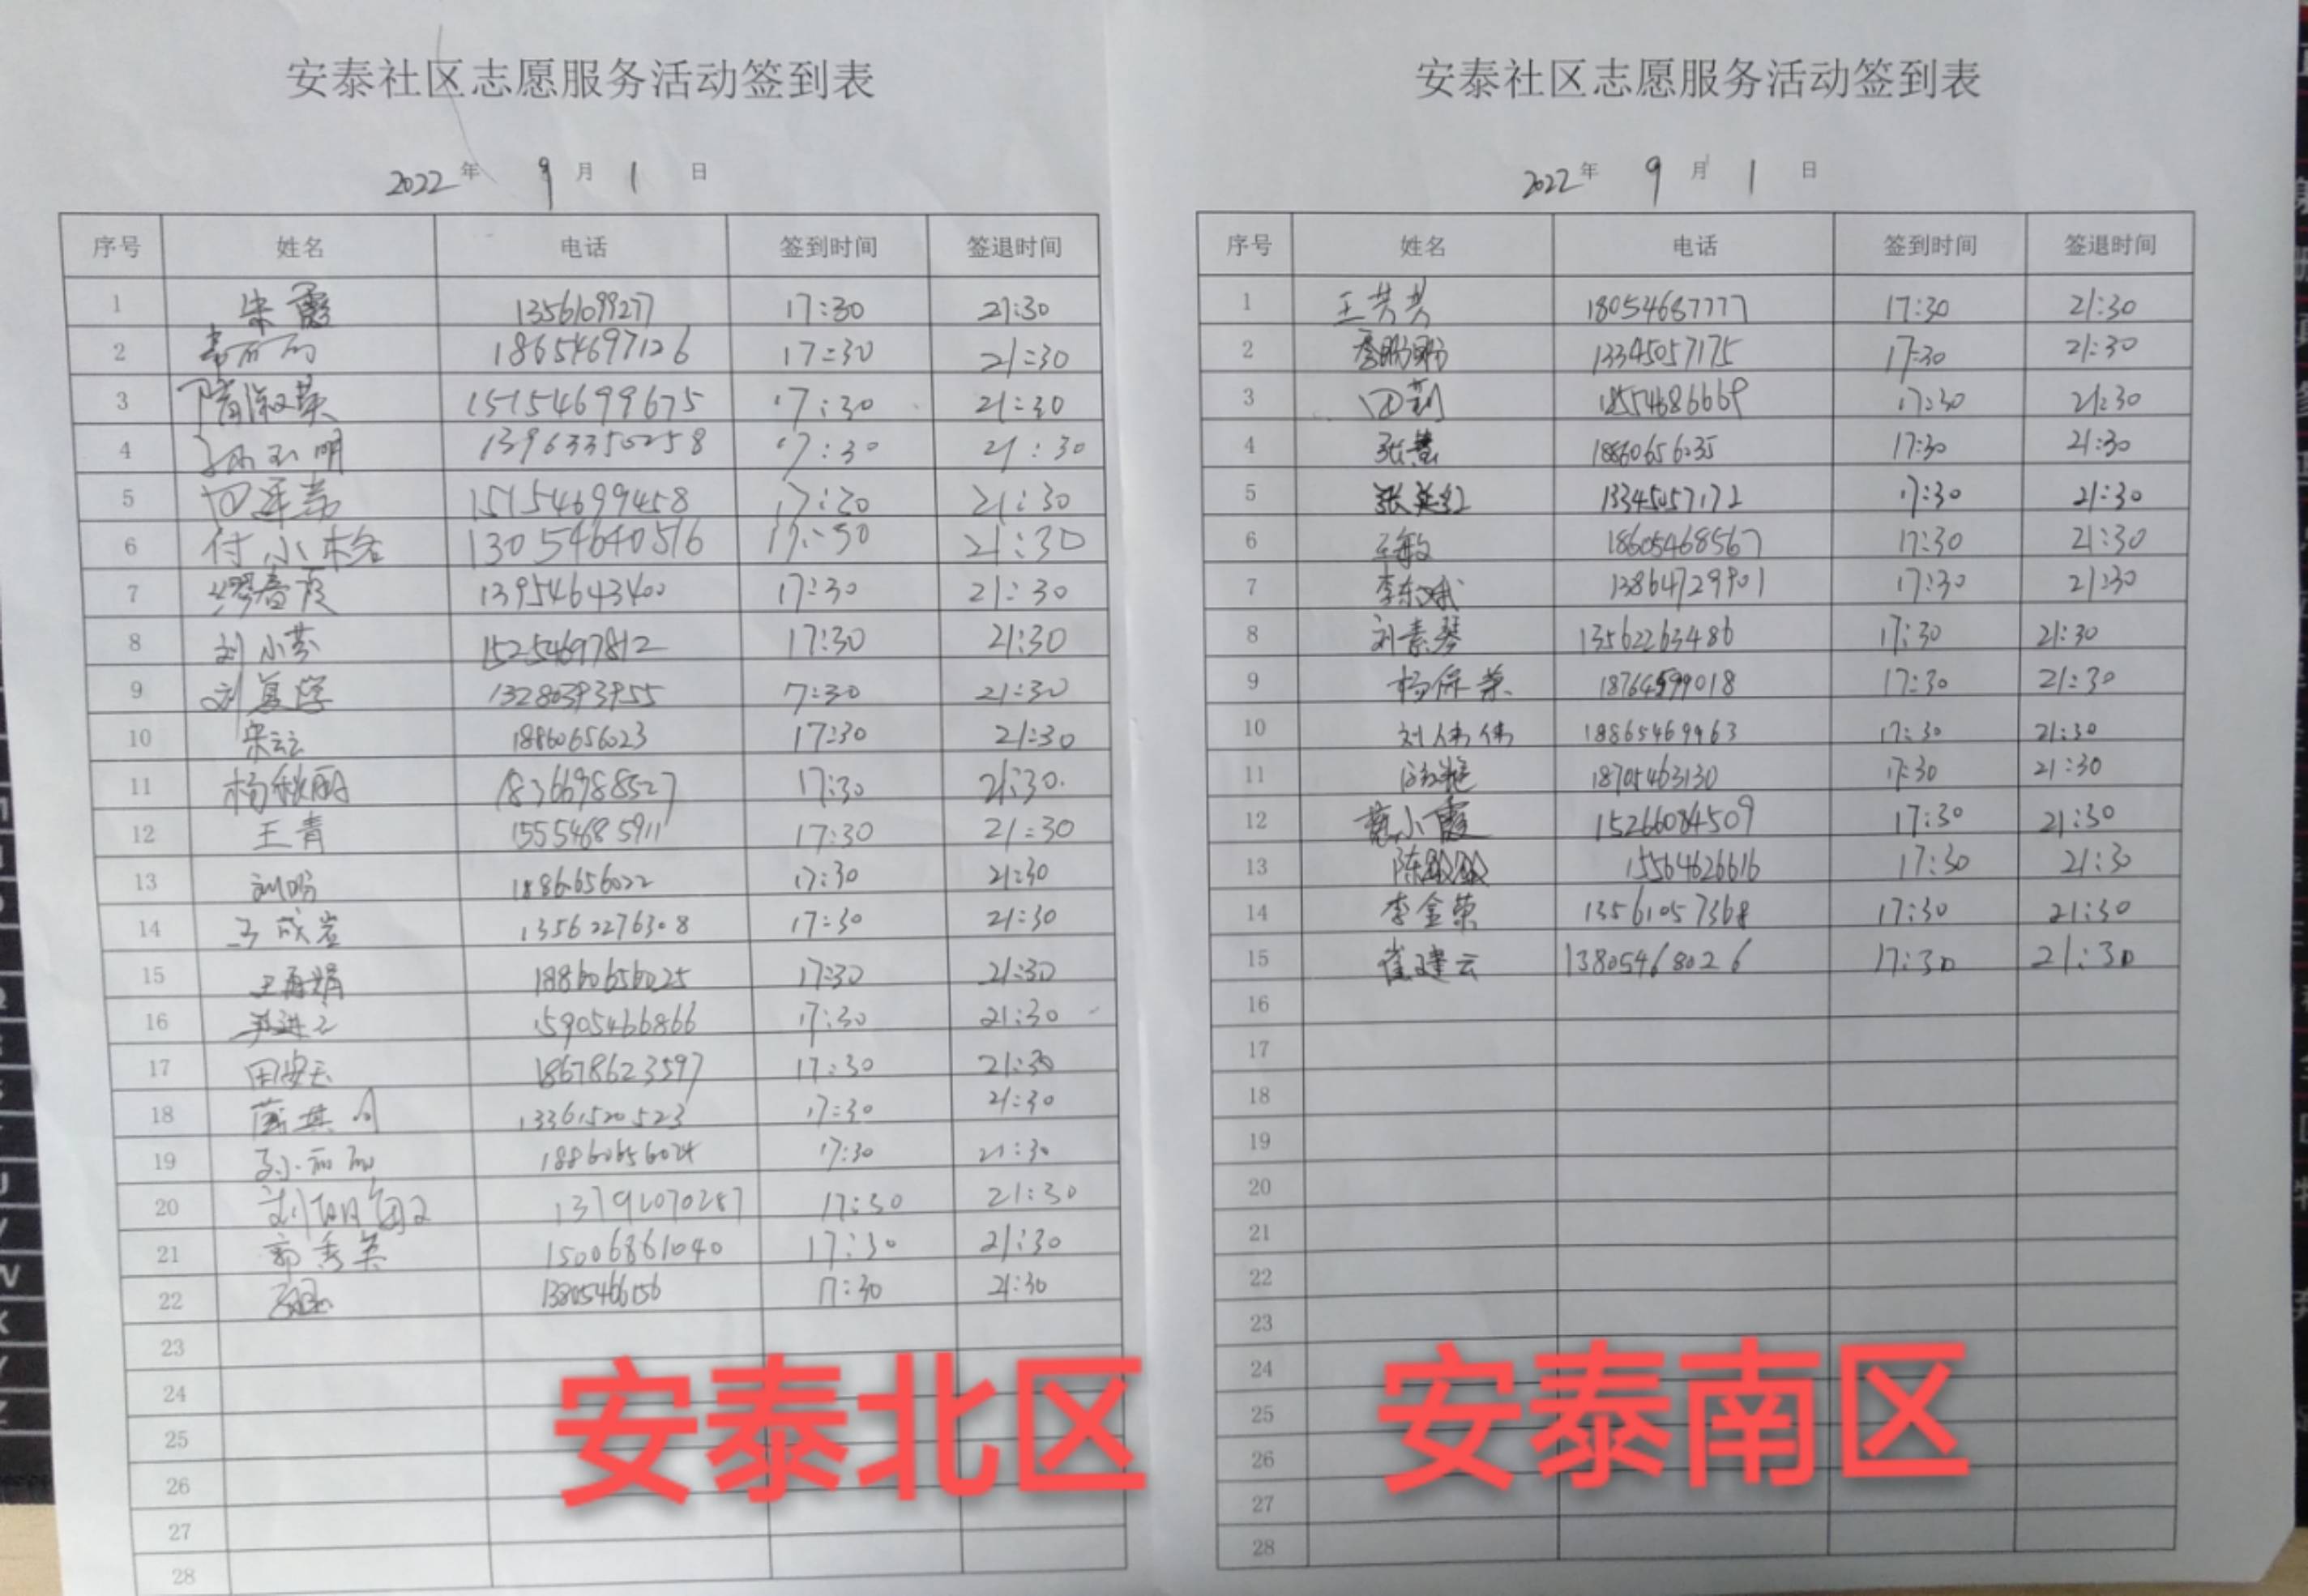 安泰社区志愿服务活动签到表
2022年 9月 1日
序号 姓名 电话 签到时间 签退时间
1 朱霞 13561099277 17:30 21:30
2 18654697126 17:30 21:30
3 隋淑英 15154699675 17:30 21:30
4 孙玉明 13963350258 17:30 21:30
5 田连芳 15154699458 17:30 21:30
6 付小格 13054640516 17:30 21:30
7 缪春霞 13954643400 17:30 21:30
8 刘小芬 15254697812 17:30 21:30
9 刘复学 13280393955 7:30 21:30
10 宋云云 18860656023 17:30 21:30
11 杨秋丽 18366988527 17:30 21:30
12 王青 15554685911 17:30 21:30
13 17:30 21:30
14 13562276308 17:30 21:30
15 王再娟 18860656025 17:30 21:30
16 15905466866 17:30 21:30
17 18678623597 17:30 21:30
18 13361520523 17:30 21:30
19 孙丽丽 18860656024 17:30 21:30
20 17:30 21:30
21 郭秀英 15006861040 17:30 21:30
22 17:30 21:30
23
24
25
26
27
28
安泰北区
安泰社区志愿服务活动签到表
2022年 9月 1日
序号 姓名 电话 签到时间 签退时间
1 王芳芳 18054687777 17:30 21:30
2 李盼盼 13345057175 17:30 21:30
3 田莉 18554686669 17:30 21:30
4 张慧 18860656035 17:30 21:30
5 张英红 13345057172 17:30 21:30
6 王敏 18605468567 17:30 21:30
7 李东娥 13864729901 17:30 21:30
8 刘素琴 13562263486 17:30 21:30
9 17:30 21:30
10 刘伟伟 18865469963 17:30 21:30
11 18705463130 17:30 21:30
12 小霞 15266084509 17:30 21:30
13 陈 15564626616 17:30 21:30
14 李金荣 13561057368 17:30 21:30
15 崔建云 13805468026 17:30 21:30
16
17
18
19
20
21
22
23
24
25
26
27
28
安泰南区